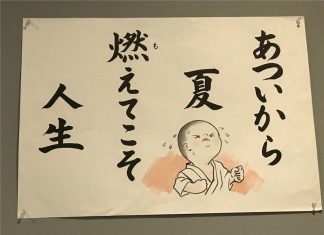 あついから
夏
燃えてこそ
も
人生